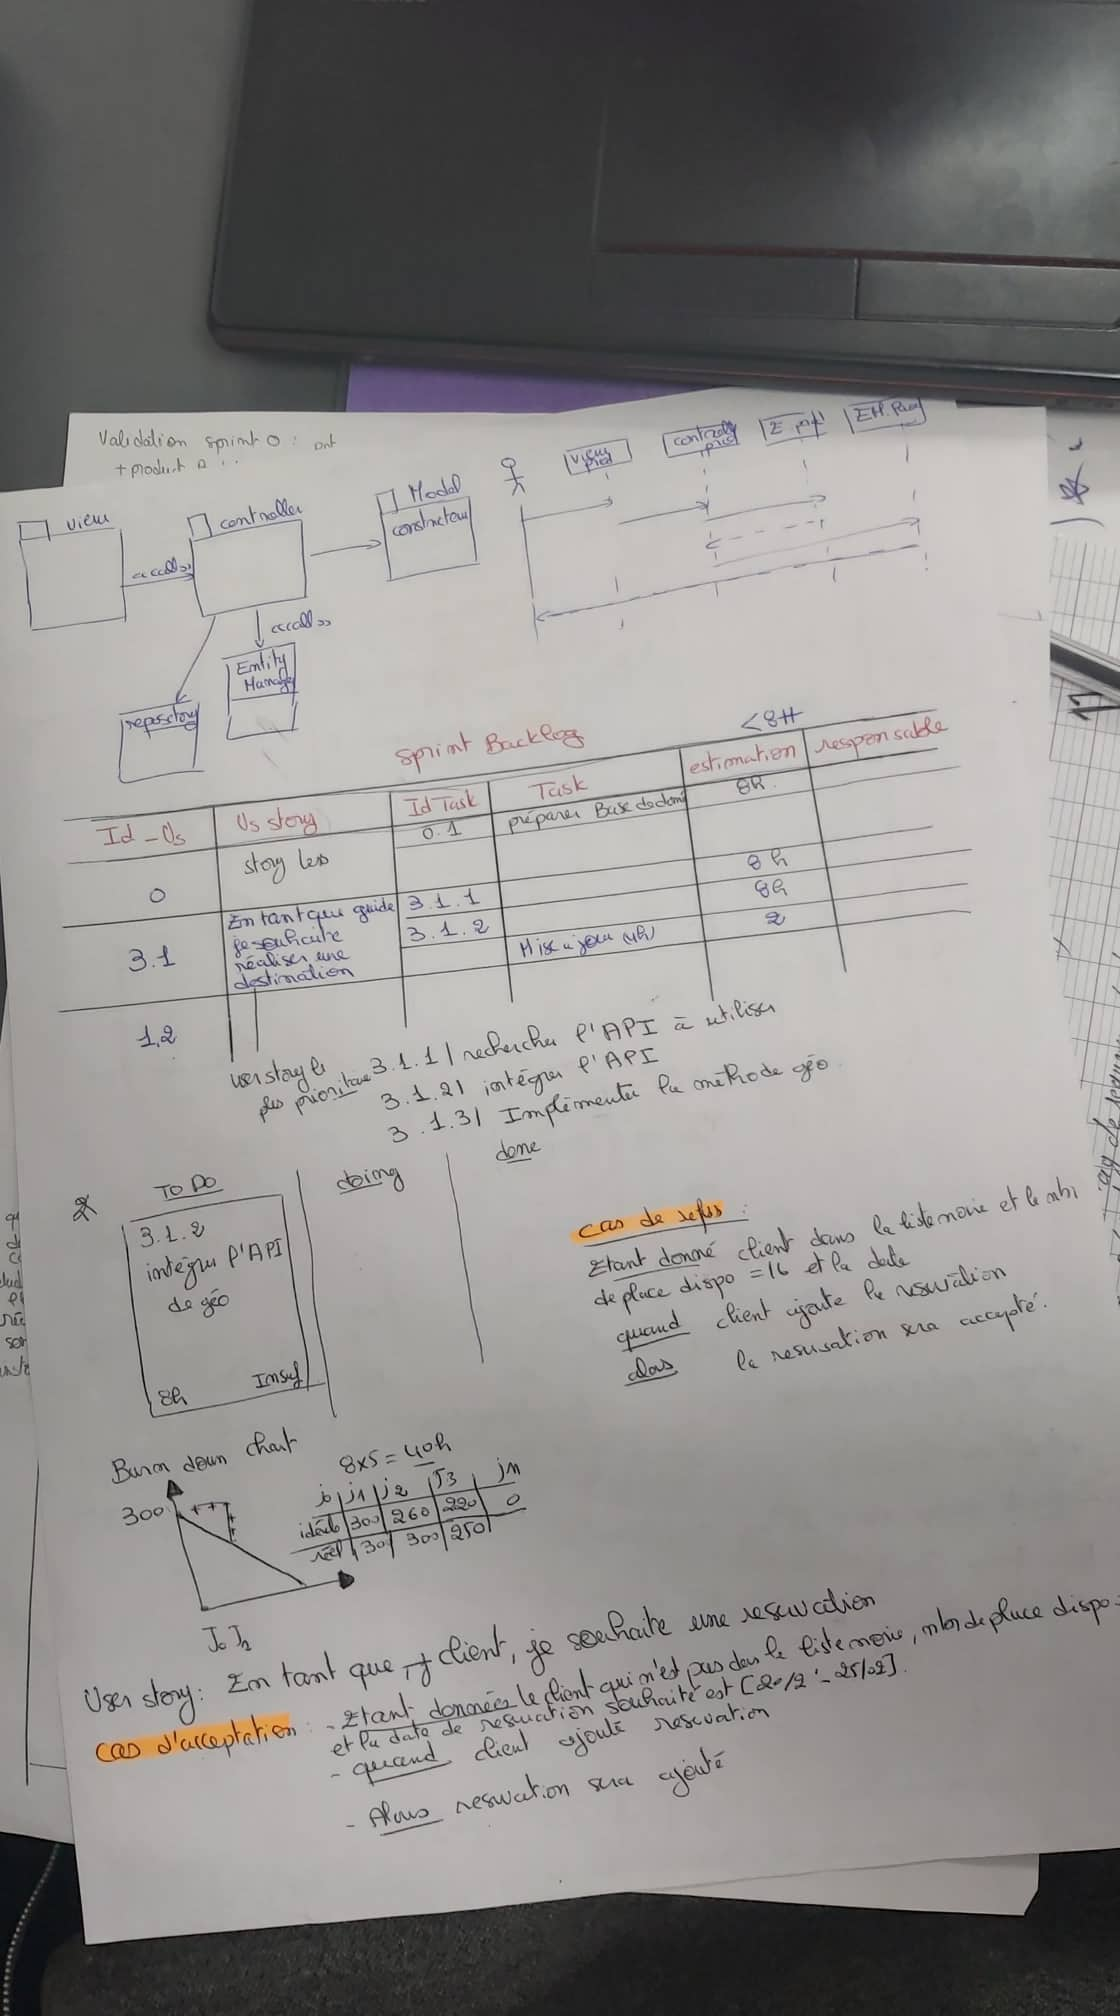 Validation sprint 0 : ont
+ product
view
controller
Modal
constructeur
<<call>>
<<call>>
Entity
Manager
repository
view
prod
E.
Sprint Backlog
<8H
Id - Us
Us story
Id Task
Task
estimation
responsable
0
story less
0.1
préparer Base de donné
8h
3.1
En tant que guide
je souhaite
réaliser une
destination
3.1.1
8h
3.1.2
8h
Mise a jour (4h)
2
1,2
user story le
plus prioritaire
3.1.1 | rechercher l'API à utiliser
3.1.2 | intégrer l'API
3.1.3 | Implémenter la méthode géo
To Do
doing
done
3.1.2
intégrer l'API
de géo
8h
Cas de refus :
Etant donné client dans la liste noire et le nbr
de place dispo = 16 et la date
quand client ajoute la reservation
alors la reservation sera accepté.
Burn down chart
300
J0 J2
8x5 = 40h
j0 j1 j2 J3 jn
idéal 300 260 220 0
réel 30 300 250
User story : En tant que client, je souhaite une reservation
Cas d'acceptation : - Etant données le client qui n'est pas dans la liste noire, nbr de place dispo
et la date de reservation souhaité est [20/2 - 25/02].
- quand client ajouté reservation
- Alors reservation sera ajouté